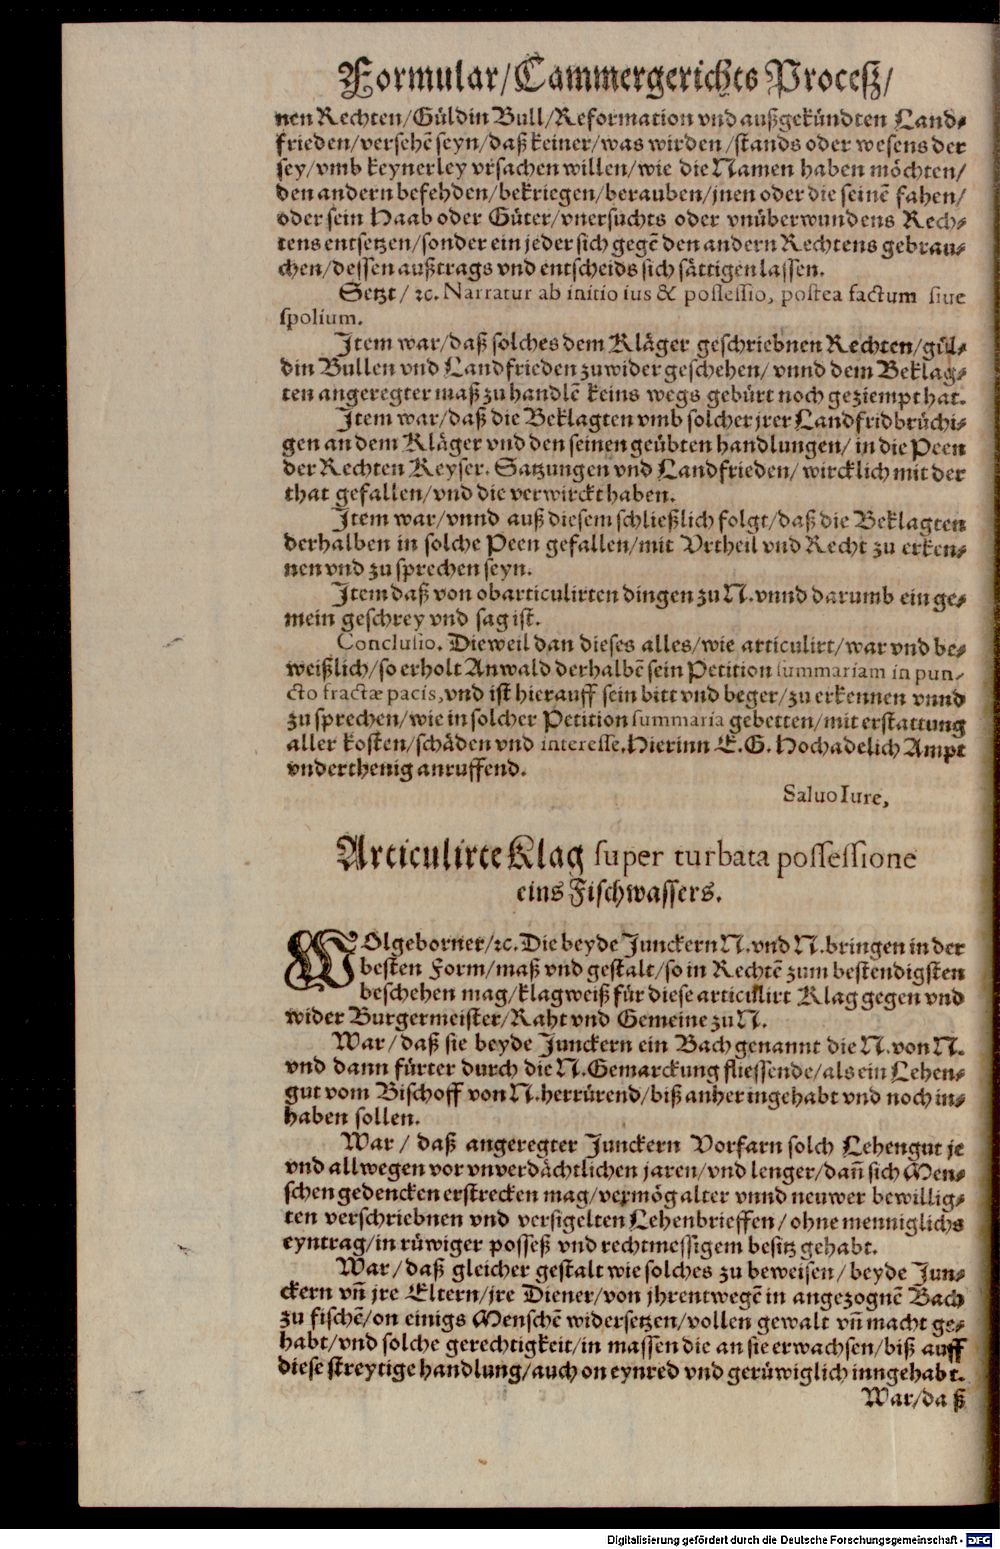 Formular/Cammergerichts Proceſz/
nen Rechten/Güldin Bull/Reformation vnd außgekündten Land-
frieden/verſehẽ ſeyn/daß keiner/was wirden/ſtands oder weſens der
ſey/vmb keynerley vrſachen willen/wie die Namen haben möchten/
den andern befehden/bekriegen/berauben/jnen oder die ſeinẽ fahen/
oder ſein Haab oder Güter/vnerſuchts oder vnüberwundens Rech-
tens entſetzen/ſonder ein jeder ſich gegẽ den andern Rechtens gebrau-
chen/deſſen außtrags vnd entſcheids ſich ſättigen laſſen.
Setzt/ ꝛc. Narratur ab initio ius & poſſeſſio, poſtea factum ſiue
ſpolium.
Item war/daß ſolches dem Kläger geſchriebnen Rechten/gül-
din Bullen vnd Landfrieden zuwider geſchehen/ vnnd dem Beklag-
ten angeregter maß zu handlẽ keins wegs gebürt noch geziempt hat.
Item war/daß die Beklagten vmb ſolcher jrer Landfridbrüchi-
gen an dem Kläger vnd den ſeinen geübten handlungen/ in die Peen
der Rechten Keyſer. Satzungen vnd Landfrieden/ wircklich mit der
that gefallen/vnd die verwirckt haben.
Item war/vnnd auß dieſem ſchließlich folgt/daß die Beklagten
derhalben in ſolche Peen gefallen/mit Vrtheil vnd Recht zu erken-
nen vnd zu ſprechen ſeyn.
Item daß von obarticulirten dingen zu N. vnnd darumb ein ge-
mein geſchrey vnd ſag iſt.
Concluſio. Dieweil dan dieſes alles/wie articulirt/war vnd be-
weißlich/ſo erholt Anwald derhalbẽ ſein Petition ſummariam in pun-
cto fractæ pacis, vnd iſt hierauff ſein bitt vnd beger/zu erkennen vnnd
zu ſprechen/wie in ſolcher Petition ſummaria gebetten/mit erſtattung
aller koſten/ſchäden vnd intereſſe. Hierinn E. G. Hochadelich Ampt
vnderthenig anruffend.
Saluo Iure,
Articulirte Klag ſuper turbata poſſeſſione
eins Fiſchwaſſers.
WOlgeborner/ꝛc. Die beyde Junckern N. vnd N. bringen in der
beſten Form/maß vnd geſtalt/ſo in Rechtẽ zum beſtendigſten
beſchehen mag/klagweiß für dieſe articulirt Klag gegen vnd
wider Burgermeiſter/Raht vnd Gemeine zu N.
War/daß ſie beyde Junckern ein Bach genannt die N. von N.
vnd dann fürter durch die N. Gemarckung flieſſende/als ein Lehen-
gut vom Biſchoff von N. herrürend/biß anher ingehabt vnd noch in-
haben ſollen.
War/ daß angeregter Junckern Vorfarn ſolch Lehengut je
vnd allwegen vor vnverdächtlichen jaren/vnd lenger/dañ ſich Men-
ſchen gedencken erſtrecken mag/vermög alter vnnd neuwer bewillig-
ten verſchriebnen vnd verſigelten Lehenbrieffen/ohne menniglichs
eyntrag/in rüwiger poſſeß vnd rechtmeſſigem beſitz gehabt.
War/daß gleicher geſtalt wie ſolches zu beweiſen/beyde Jun-
ckern vñ jre Eltern/jre Diener/von jhrentwegẽ in angezognẽ Bach
zu fiſchẽ/on einigs Menſchẽ widerſetzen/vollen gewalt vñ macht ge-
habt/vnd ſolche gerechtigkeit/in maſſen die an ſie erwachſen/biß auff
dieſe ſtreytige handlung/auch on eynred vnd gerüwiglich inngehabt.
War/daß
Digitalisierung gefördert durch die Deutsche Forschungsgemeinschaft - DFG